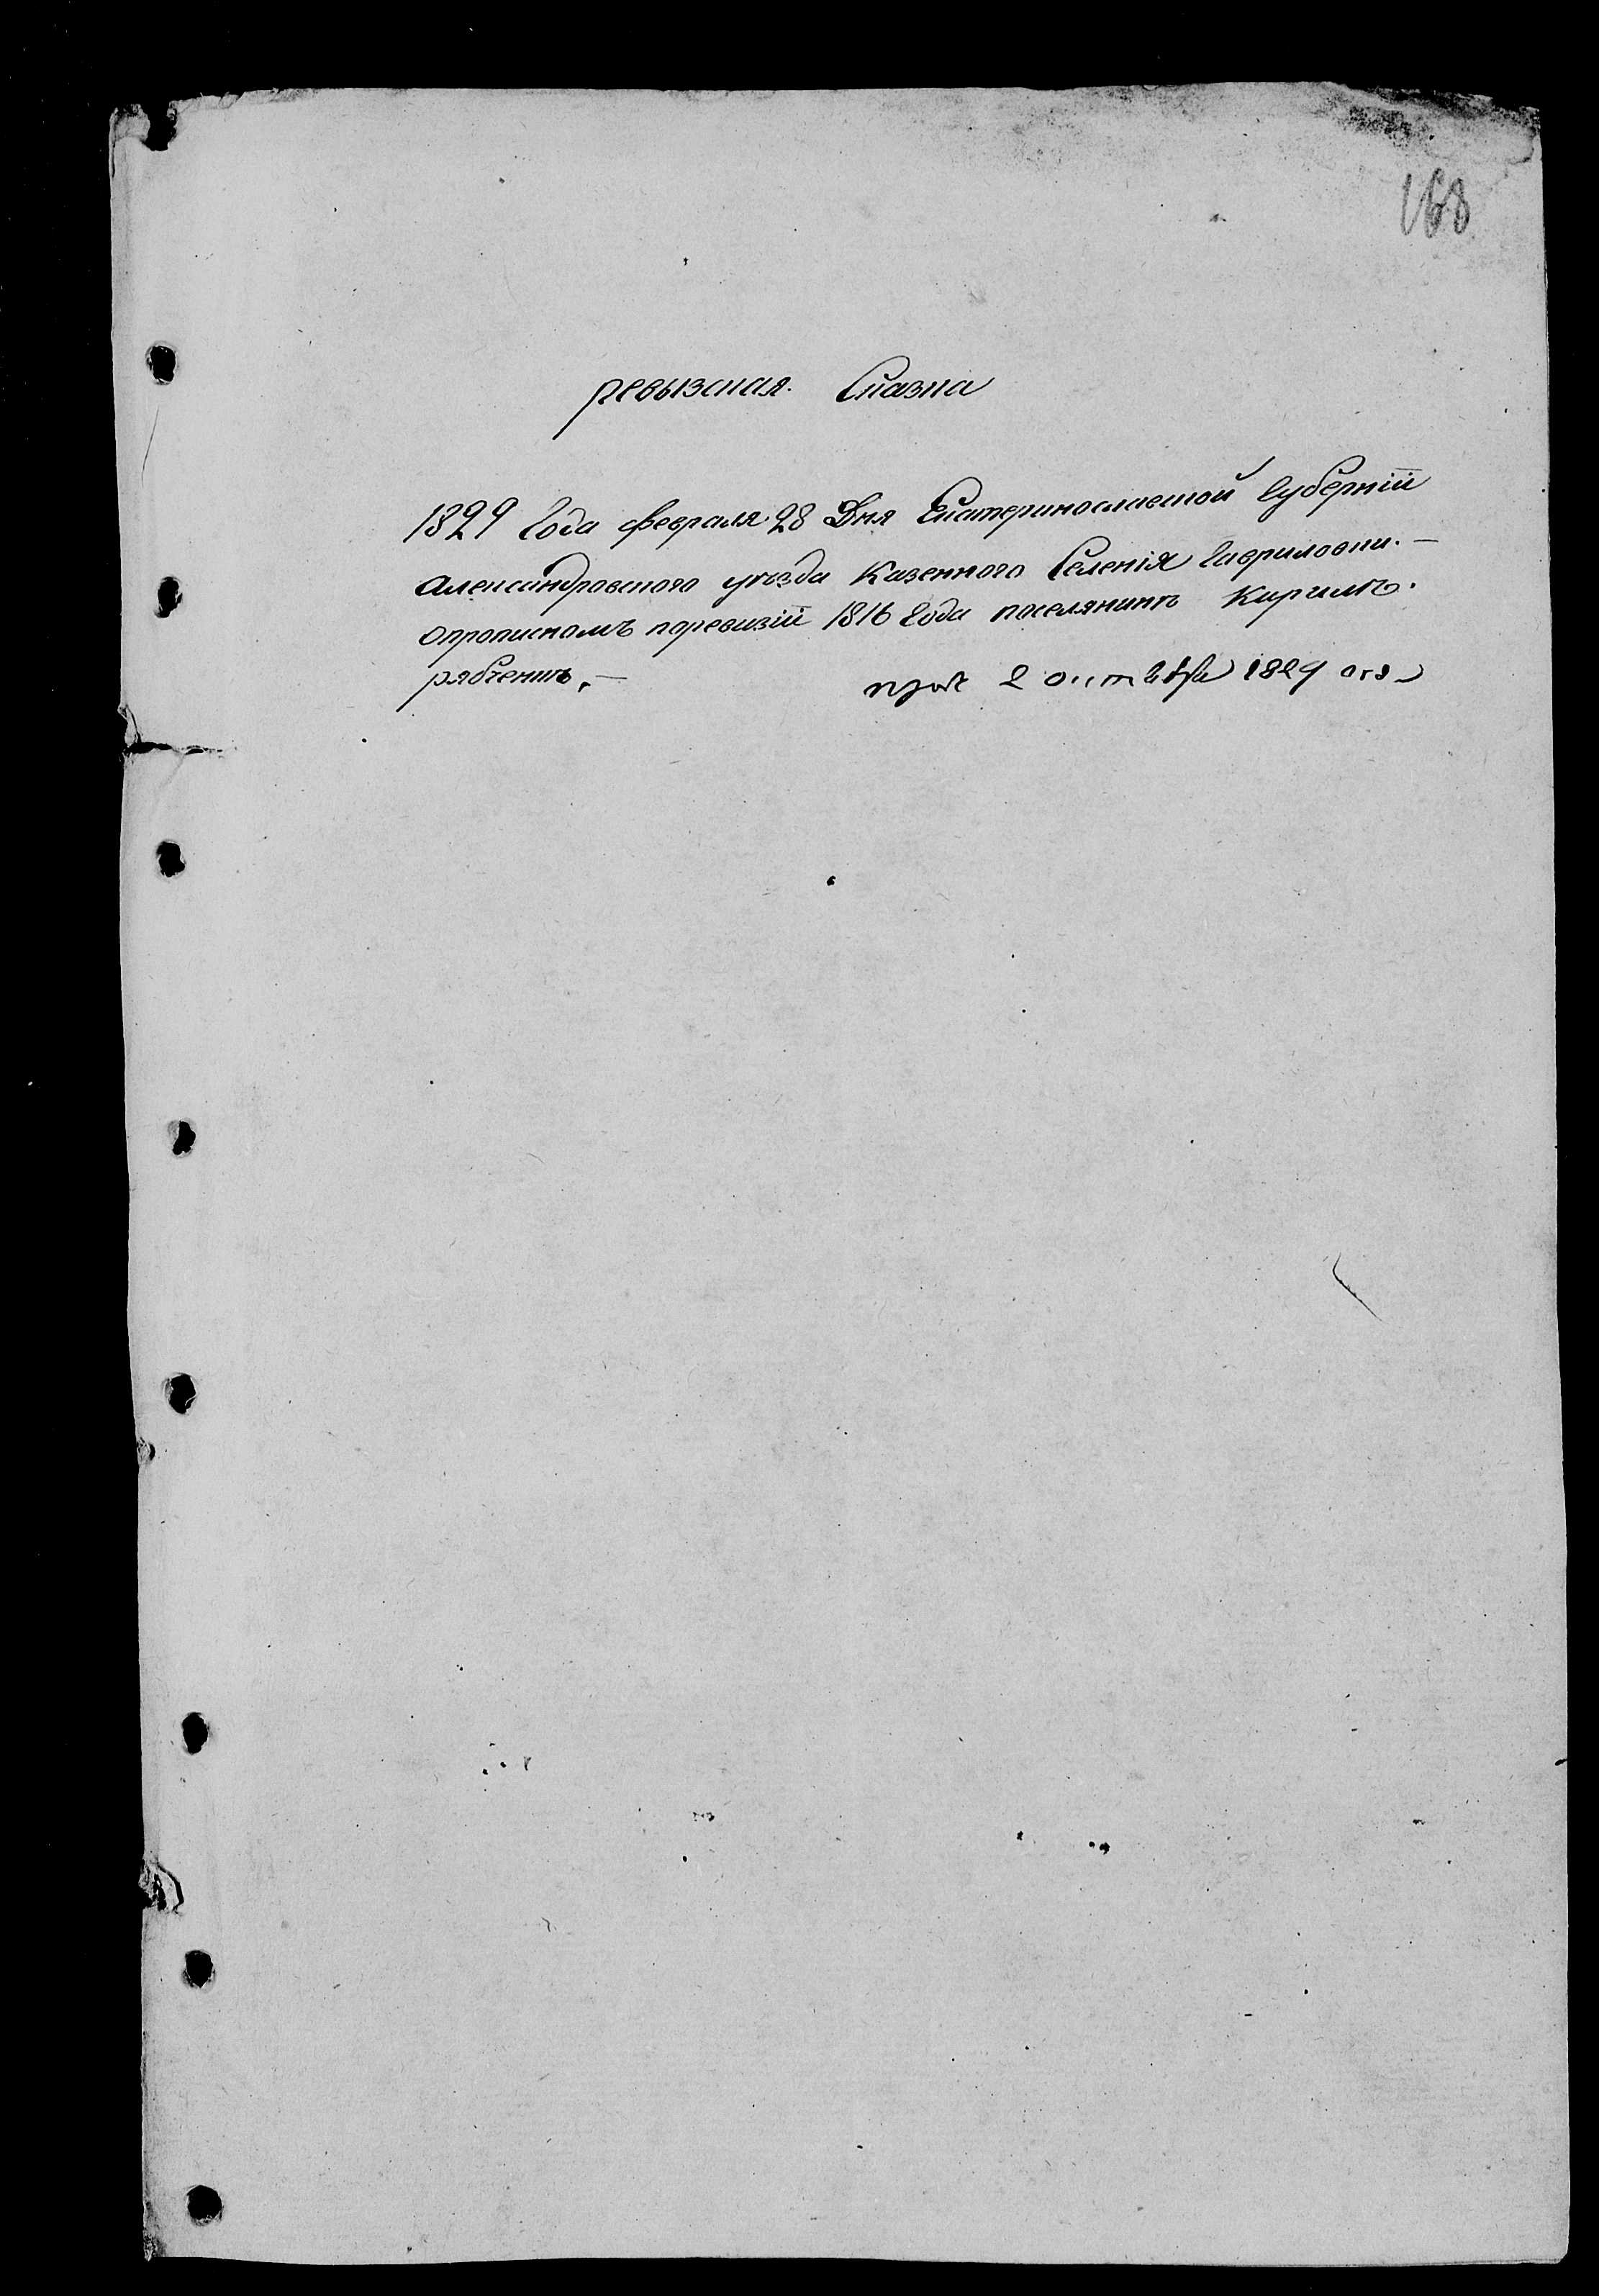 168
ревызская. Сказка
1829 Года февраля 28 Дня Екатеринославской Губернiй
Александровского уѣзда Казенного Селенiя Гавриловки. —
опрописномъ поревизiй 1816 Года поселянинѣ Кирилѣ.
рябченкѣ. —
2 октября 1829 ого